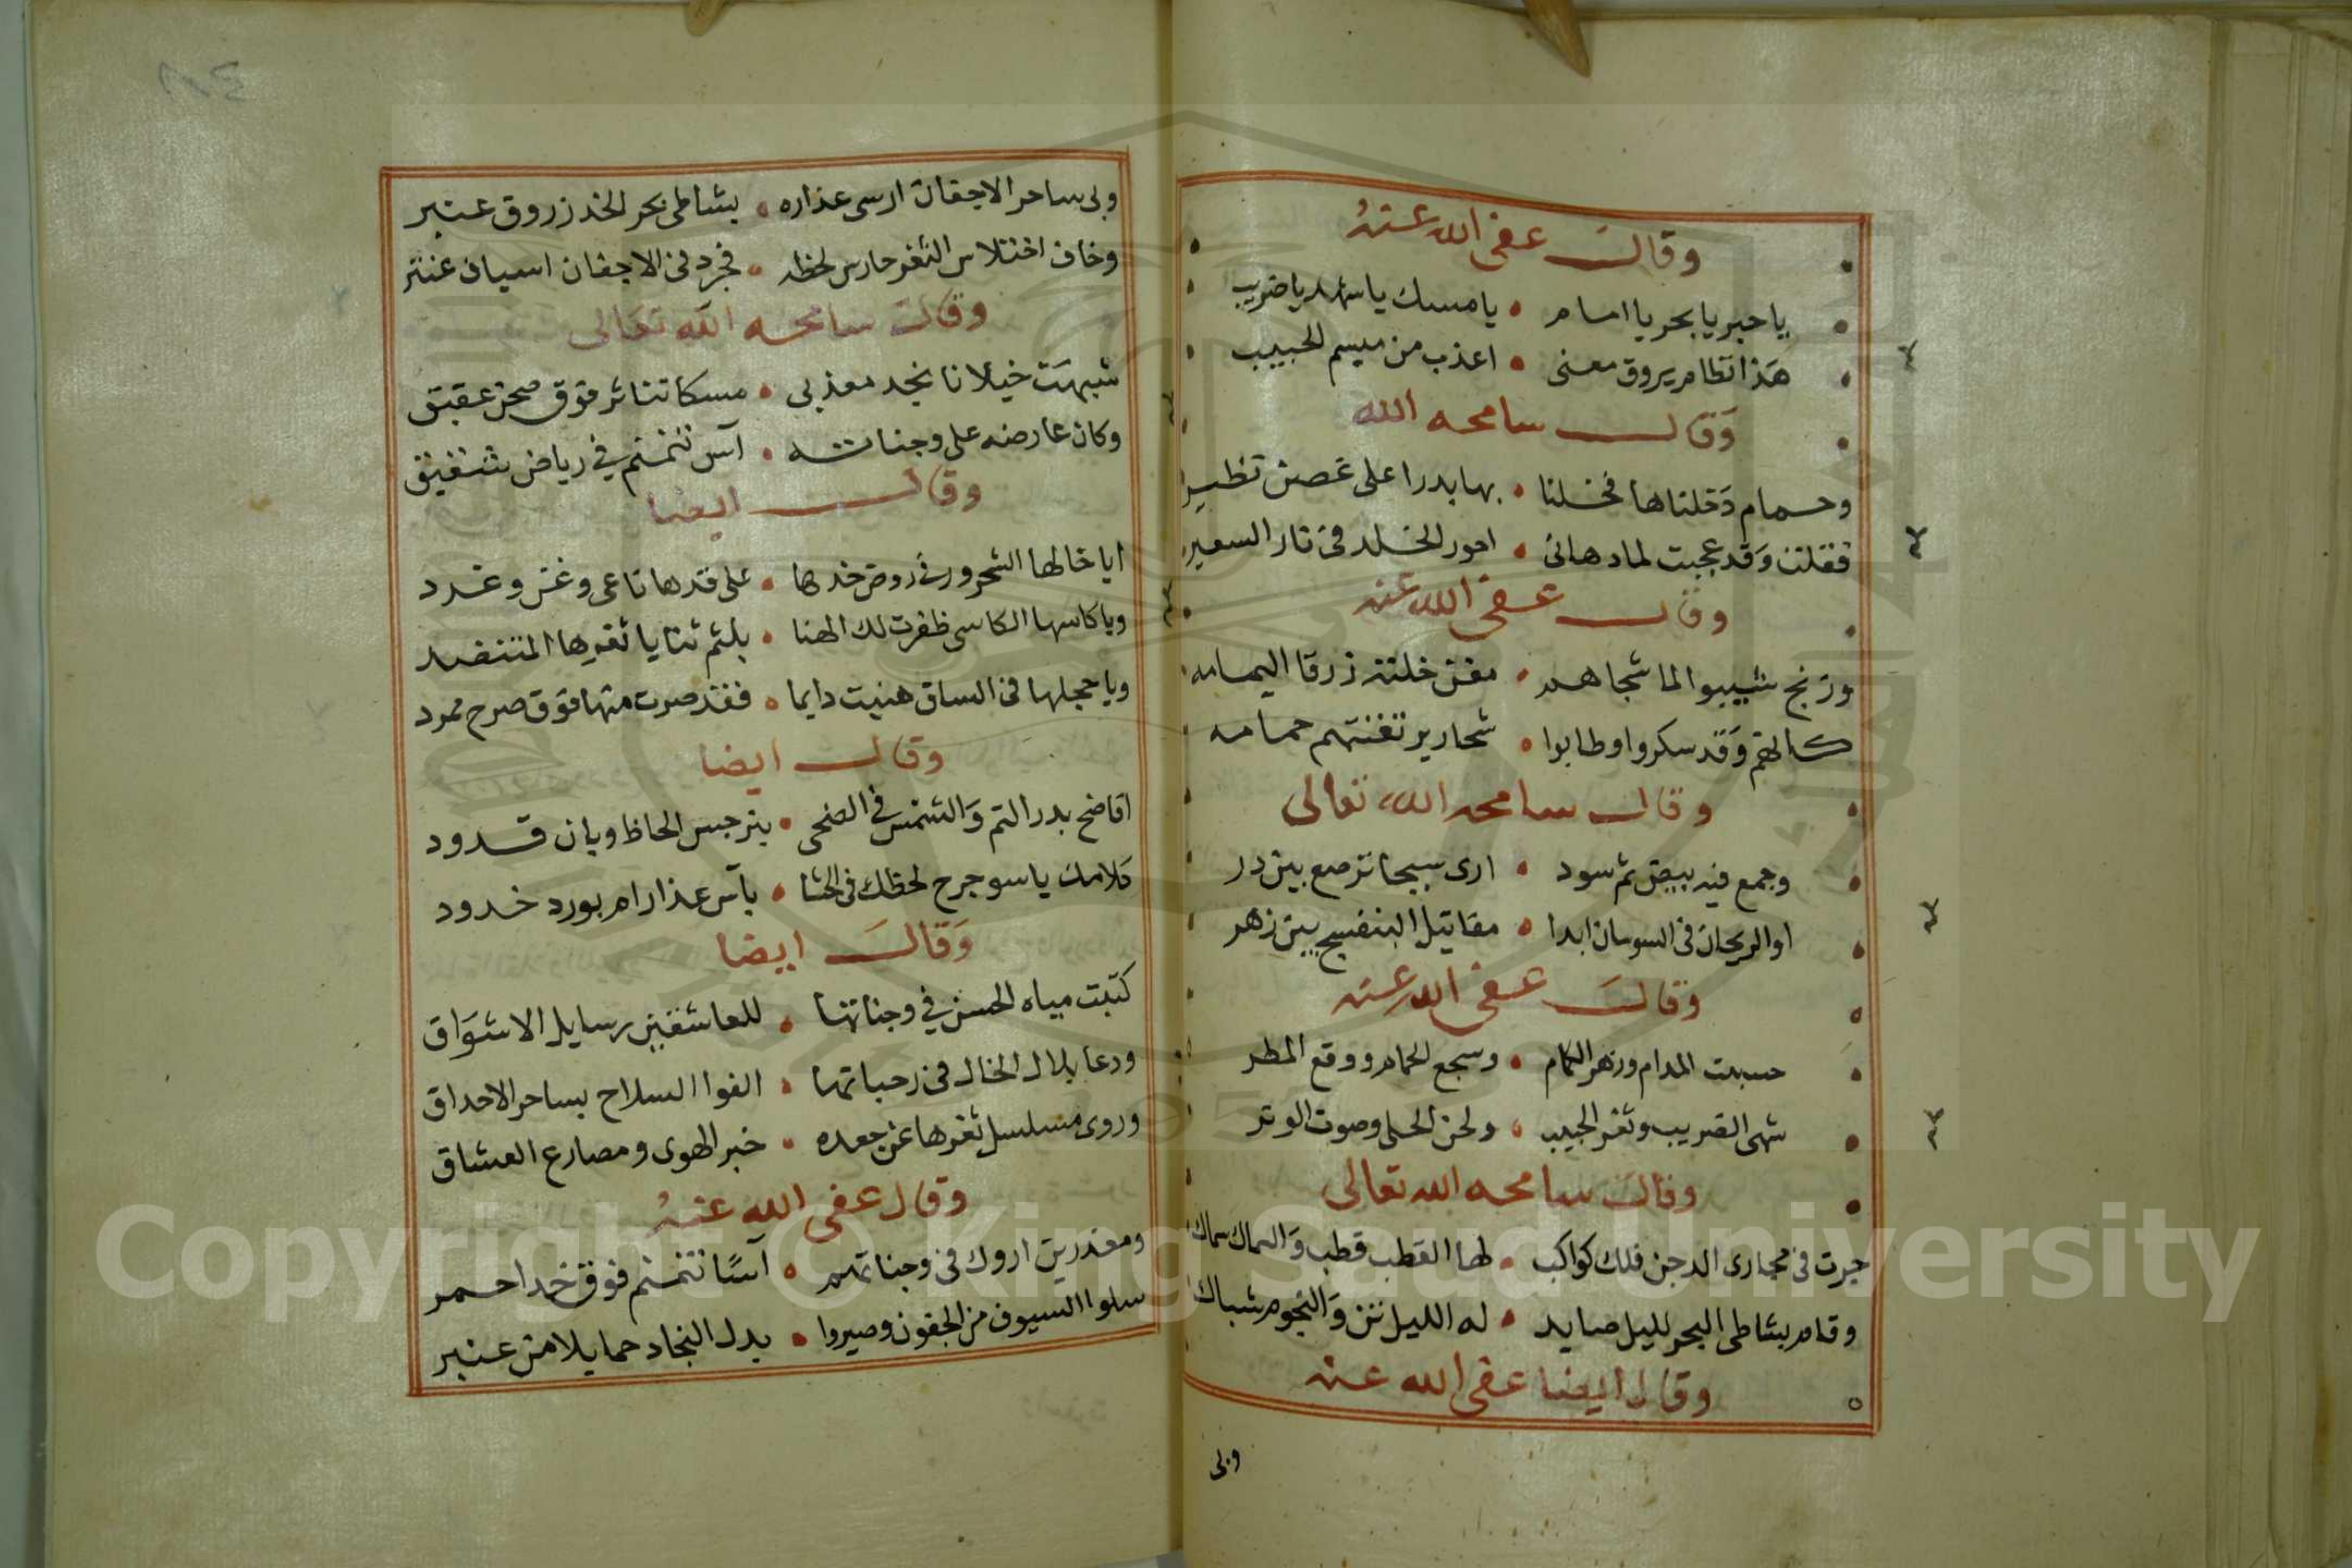 وقال عفى الله عنهُ
يا حبر يا بحر يا امام • يا مسك يا شهد يا ضريب
هَذا نظام يروق معنى • اعذب من مبسم الحبيب
وَقال سامحه الله
وحمام دَخلناها فخلنا • بها بدرا على غصن نظير
فقلت وَقد عجبت لما دهانى • احور الخلد فى نار السعير
وقال عفى الله عنه
وزنج شببوا لما شجاهم • مغن خلته زرقا اليمامه
كانهم وَقد سكروا وطابوا • شحارير تغنتهم حمامه
وقال سامحه الله تعالى
وجمع فيه بيض ثم سود • ارى سبجا ترصع بين در
او الريحان فى السوسان ابدا • مقاتيل البنفسج بين زهر
وقالَ عفى الله عنه
حسبت المدام وزهر الكمام • وسجع الحمام ووقع المطر
شهى الضريب وثغر الحبيب • ولحن الحلى وصوت الوتر
وقال سامحه الله تعالى
جرت فى مجارى الدجن فلك كواكب • لها القطب قطب وَالسماك سماك
وقام بشاطى البحر لليل صايد • له الليل وَالنجوم شباك
وقال ايضا عفى الله عنه
وبى
وبى ساحر الاجفان ارسى عذاره • بشاطى بحر الخد زروق عنبر
وخاف اختلاس الثغر حارس لحظه • فجرد فى الاجفان اسياف عنتر
وقال سامحه الله تعالى
شبهت خيلانا بخد معذبى • مسكا تناثر فوق صحن عقيق
وكان عارضه على وجناته • آس تنمنم في رياض شقيق
وقال ايضا
ايا خالها الشحرور فى روض خدها • على قدها ناعى وغن وغرد
ويا كاسها الكاسى ظفرت لك الهنا • بلثم ثنايا ثغرها المتنضد
ويا حجلها فى الساق هنيت دايما • فقد صرت منها فوق صرح ممرد
وقال ايضا
افاضح بدر التم وَالشمس في الضحى • بنرجس الحاظ وبان قدود
كلامك ياسو جرح لحظك فى الحشا • بآس عذار ام بورد خدود
وَقالَ ايضا
كتبت مياه الحسن في وجناتها • للعاشقين رسايل الاشوَاق
ودعا بلال الخال فى رحباتها • القوا السلاح بساحر الاحداق
وروى مسلسل ثغرها عن جعده • خبر الهوى ومصارع العشاق
وقال عفى الله عنهُ
ومعذرين اروك فى وجناتهم • آسًا تنمنم فوق خد احمر
سلوا السيوف من الجفون وصيروا • بدل النجاد حمايلا من عنبر
Copyright © King Saud University